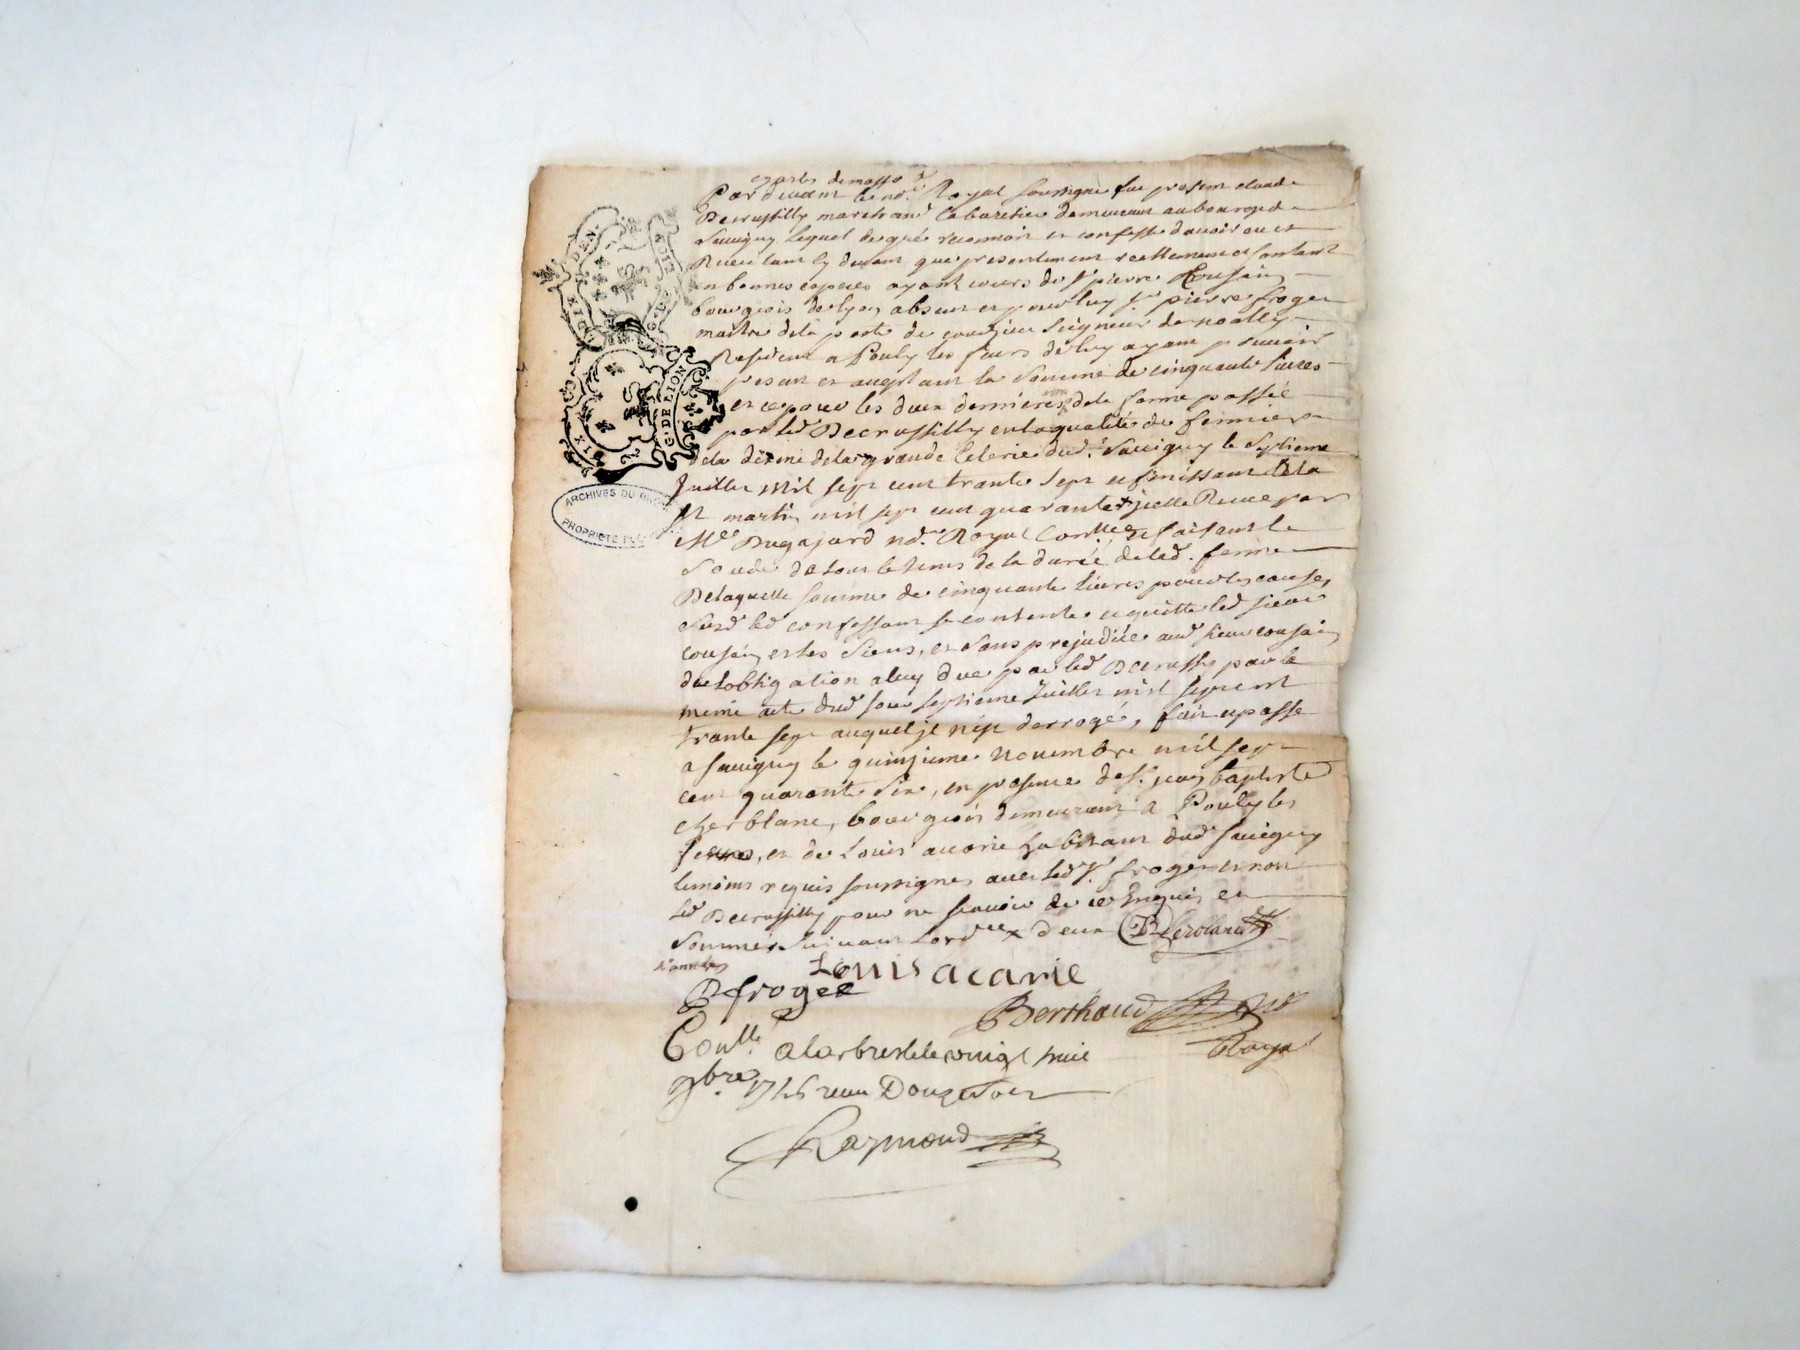 Pardevant le no.re Royal soussigné fut present claude
Decrussilly marchand Cabaretier demeurant au bourg de
Savigny lequel de gré reconnoit et confesse d'avoir eu et
Receu tant cy devant que presentement reellement et contant
en bonnes especes ayant cours de Sr pierre Cousain
bourgeois de lyon absent et pour luy Sr pierre froger
maitre de la poste de Seigneur de noally
Resident a Pouly les feurs de luy ayant pouvoir
present et acceptant la Somme de cinquante livres
et ce pour les deux dernieres de la ferme passée
par led Decrussilly en la qualité de fermier
de la dixme de la grande Celerie dud. Savigny le Septieme
Juillet mil sept cent trante sept et finissant a la
St martin mil sept cent quarante Receue par
Me Dugajard no.re Royal Con.lle et faisant le
Solde de tout le tems de la durée de lad. ferme
De laquelle somme de cinquante livres pour les causes
Susd led confessant se contente et quitte led sieur
cousain et les siens, et sans prejudice aud sieur cousain
de lobligation a luy due par led Decrussilly par le
meme acte dud jour septieme Juillet mil sept cent
trante sept auquel il n'est derrogé, fait et passé
a Savigny le quinzieme novembre mil sept
cent quarante Six, en presence de Sr. jean baptiste
cherblanc, bourgeois demeurant a Pouly les
feurs, et de Louis acarie habitant dud Savigny
temoins requis soussignes avec led Sr. froger et non
led Decrussilly pour ne sçavoir de ce Enquis et
Sommé Suivant Lord.ce x deux Cherblanc
Louis acarie
P froger
Berthaud no.re
Royal
Con.lle a larbresle le vingt huit
9bre. 1746 receu Douze sols
Raymond
G. DE LION
ARCHIVES DU RHÔNE
PROPRIETE PUBLIQUE